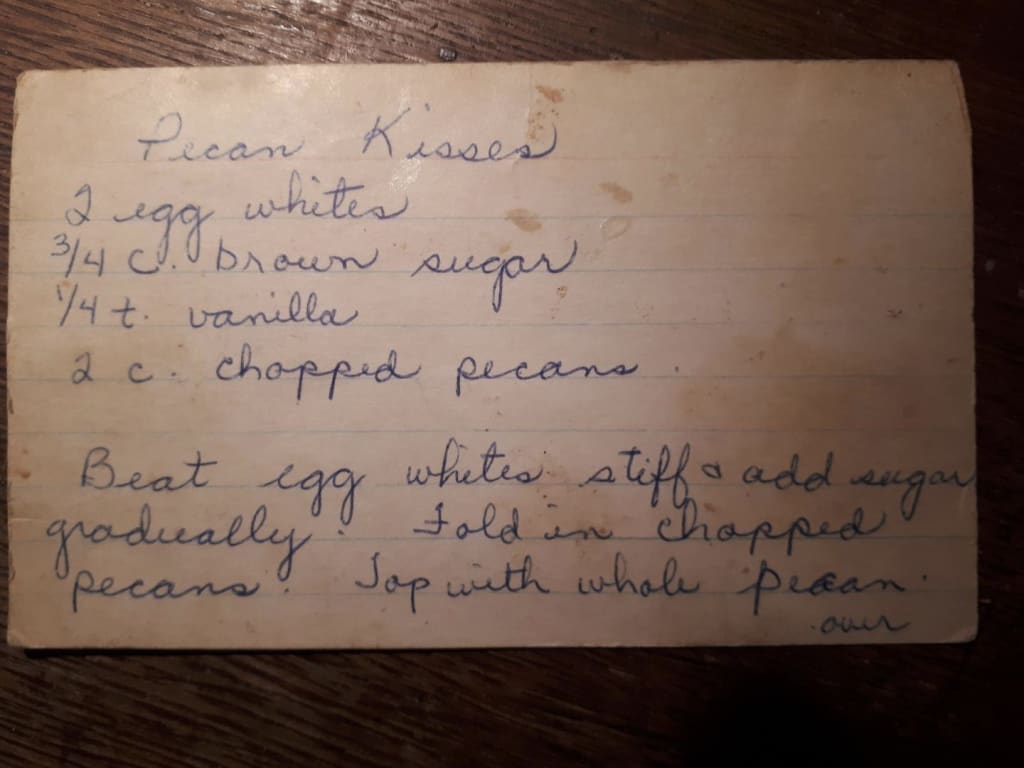 Pecan Kisses
2 egg whites
3/4 c. brown sugar
1/4 t. vanilla
2 c. chopped pecans.
Beat egg whites stiff & add sugar
gradually. Fold in chopped
pecans. Top with whole pecan.
over